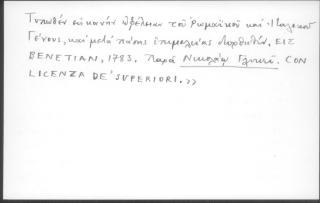 Τυπωθέν εἰς κοινήν ὠφέλειαν τοῦ Ῥωμαϊκοῦ καί Ἰταλικοῦ
Γένους, καί μετά πάσης ἐπιμελείας διορθωθέν. ΕΙΣ
ΒΕΝΕΤΙΑΝ, 1783. Παρά Νικολάῳ Γλυκεῖ. CON
LICENZA DE' SUPERIORI. >>